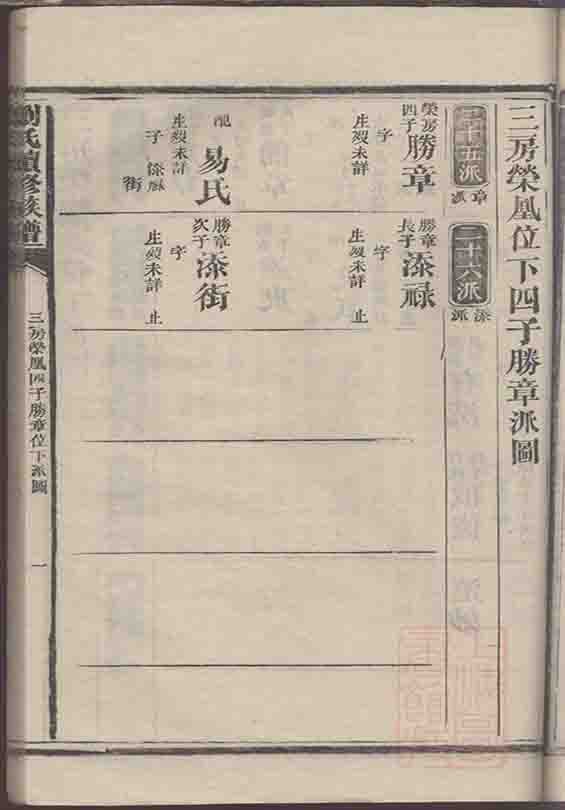 三房榮鳳位下四子勝章派圖
三十五派
章派
三十六派
添派
榮房四子
勝章
字
生歿未詳
配
易氏
生歿未詳
子 添祿
街
勝章長子
添祿
字
生歿未詳 止
勝章次子
添街
字
生歿未詳 止
劉氏續修族譜
三房榮鳳四子勝章位下派圖
一